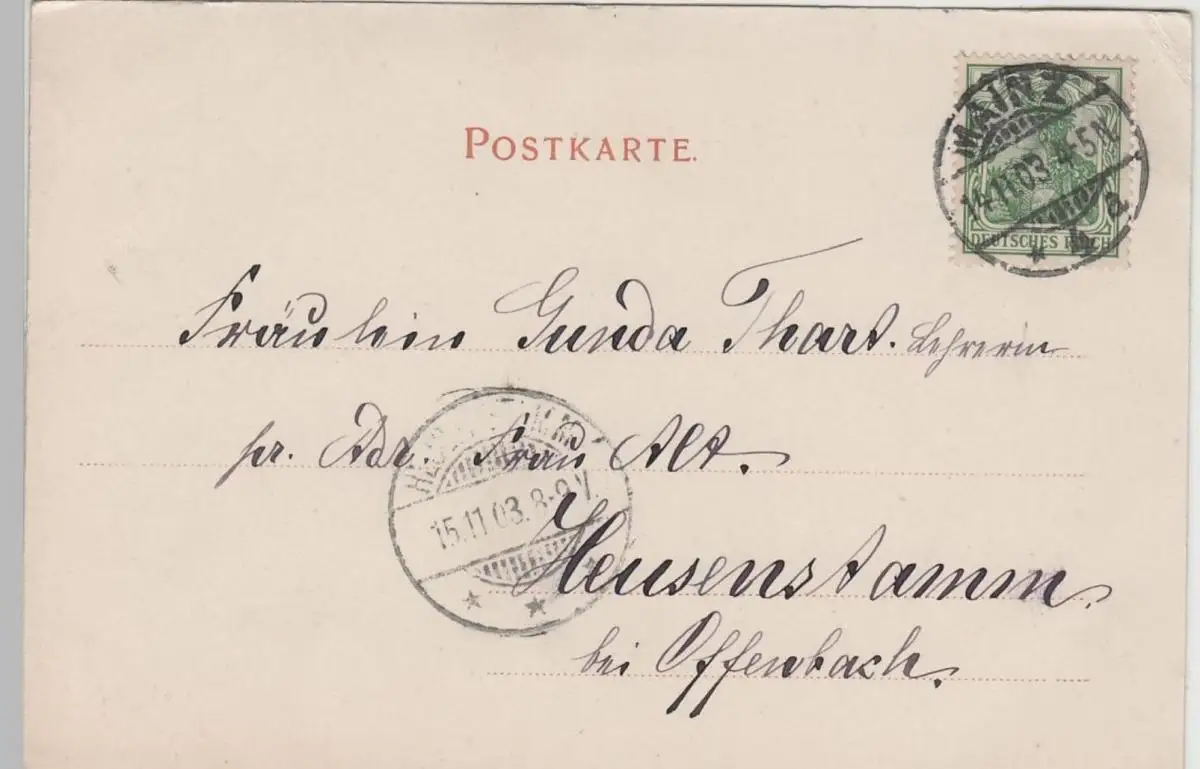 POSTKARTE.
MAINZ
14.11.03. 4-5N.
* 4 a
DEUTSCHES REICH
Fräulein Gunda Thart. Lehrerin
pr. Adr. Frau Alt.
15.11.03. 8-9V.
Heusenstamm
bei Offenbach.